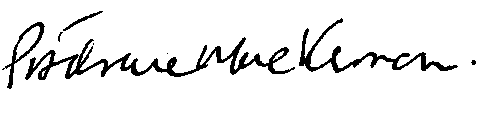 Pádraic MacKernan.